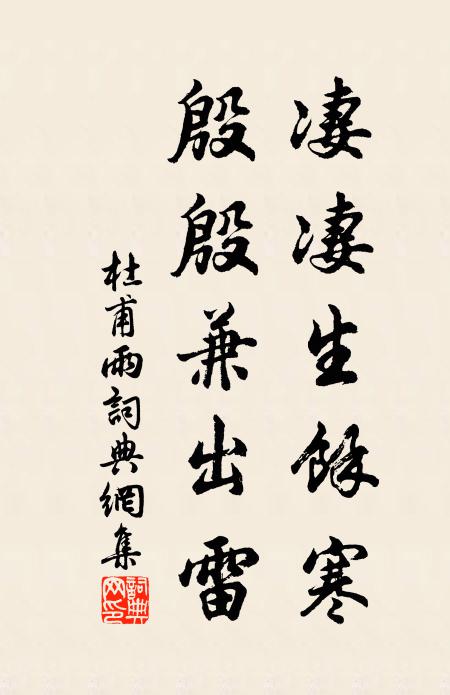 凄凄生餘寒
殷殷兼出雷
杜甫雨詞典網集
詞典网印